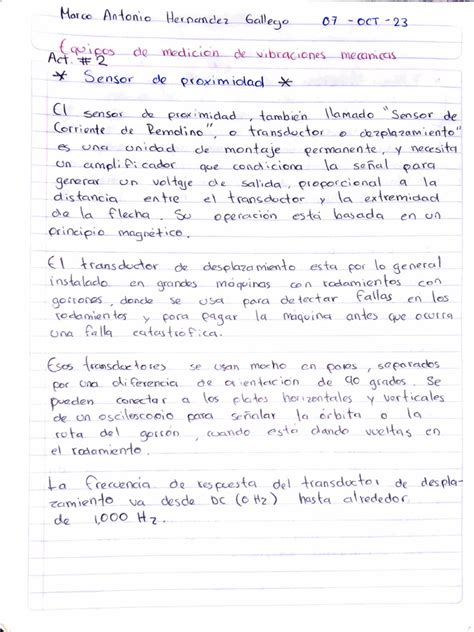 Marco Antonio Hernandez Gallego 07 - OCT - 23
Equipos de medición de vibraciones mecanicas
Act. #2
* Sensor de proximidad *
El sensor de proximidad, también llamado "Sensor de
Corriente de Remolino", o transductor o dezplazamiento"
es una unidad de montaje permanente, y necesita
un amplificador que condiciona la señal para
generar un voltaje de salida, proporcional a la
distancia entre el transductor y la extremidad
de la flecha. Su operación está basada en un
principio magnético.
El transductor de desplazamiento esta por lo general
instalado en grandes máquinas con rodamientos con
gorrones, donde se usa para detectar fallas en los
rodamientos y para pagar la maquina antes que ocurra
una falla catastrofica.
Esos transductores se usan mucho en pares, separados
por una diferencia de orientación de 90 grados. Se
pueden conectar a los platos horizontales y verticales
de un osciloscopio para señalar la órbita o la
ruta del gorrón, cuando está dando vueltas en
el rodamiento.
La frecuencia de respuesta del transductor de despla-
zamiento va desde DC (0 Hz) hasta alrededor
de 1,000 Hz.